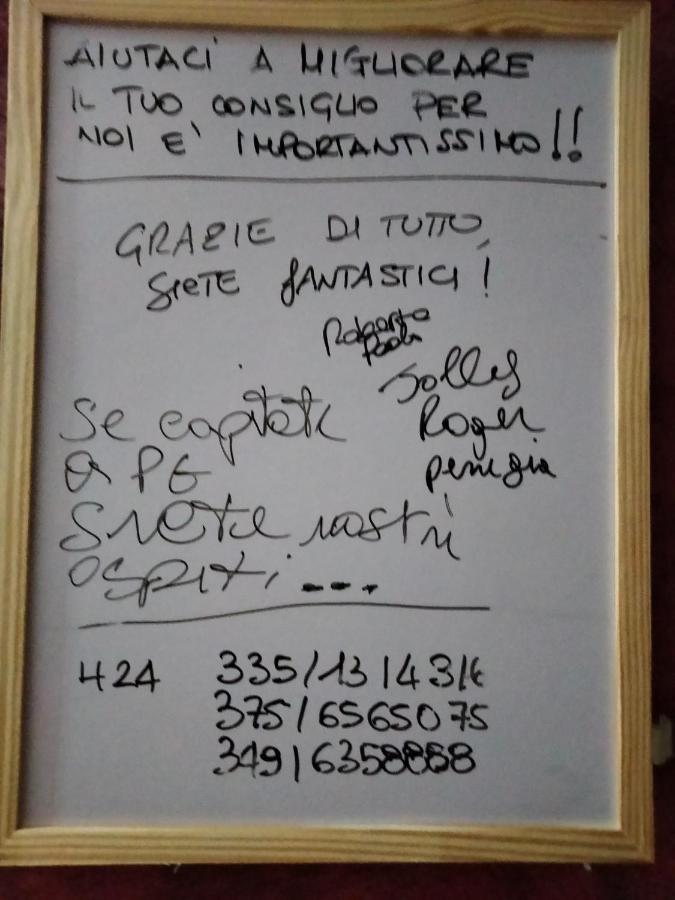 AIUTACI A MIGLIORARE
IL TUO CONSIGLIO PER
NOI E' IMPORTANTISSIMO!!
GRAZIE DI TUTTO,
SIETE FANTASTICI!
Roberto
Paola
Jolley
Roger
perugia
Se capitate
a PG
Siete nostri
ospiti...
H24
335/13143
375/6565075
349/6358868